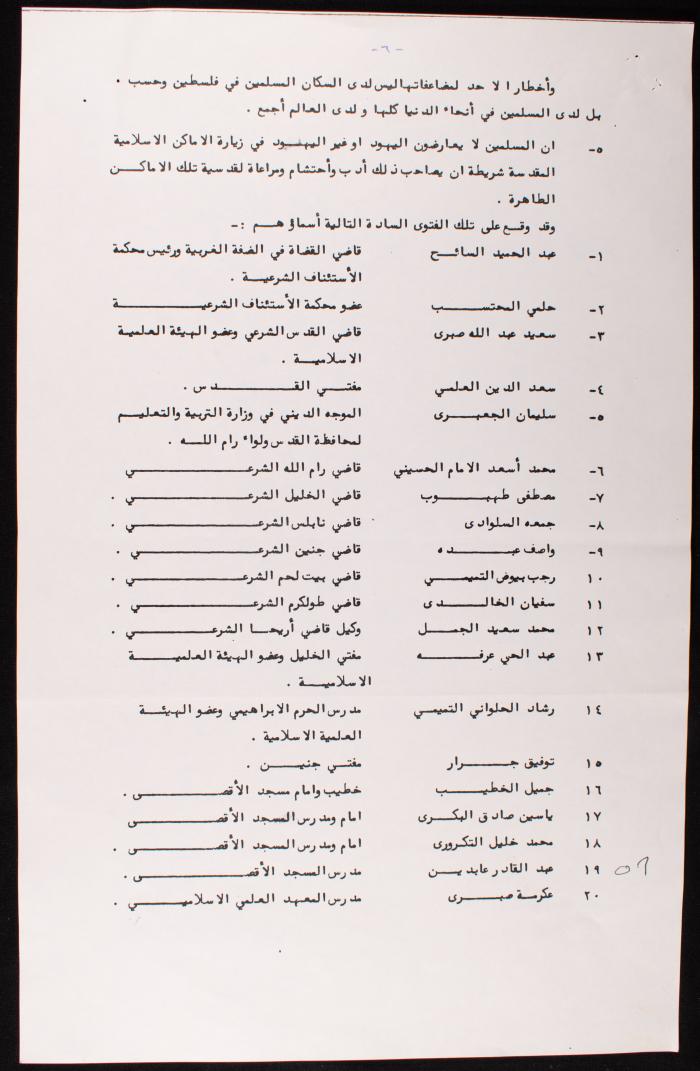 -٦-
وأخطارا لا حد لمضاعفاتها ليس لدى السكان المسلمين في فلسطين وحسب .
بل لدى المسلمين في أنحاء الدنيا كلها و لدى العالم أجمع .
٥- ان المسلمين لا يعارضون اليهود او غير اليهود في زيارة الاماكن الاسلامية
المقدسة شريطة ان يصاحب ذلك أدب وأحتشام ومراعاة لقدسية تلك الاماكن
الطاهرة .
وقد وقع على تلك الفتوى السادة التالية أسماؤهم :-
١- عبد الحميد السائح قاضي القضاة في الضفة الغربية ورئيس محكمة
الأستئناف الشرعية .
٢- حلمي المحتسب عضو محكمة الأستئناف الشرعية
٣- سعيد عبد الله صبرى قاضي القدس الشرعي وعضو الهيئة العلمية
الاسلامية .
٤- سعد الدين العلمي مفتي القدس .
٥- سليمان الجعبرى الموجه الديني في وزارة التربية والتعليم
لمحافظة القدس ولواء رام الله .
٦- محمد أسعد الامام الحسيني قاضي رام الله الشرعي
٧- مصطفى طهبوب قاضي الخليل الشرعي .
٨- جمعه السلوادى قاضي نابلس الشرعي .
٩- واصف عبده قاضي جنين الشرعي .
١٠ رجب بيوض التميمي قاضي بيت لحم الشرعي .
١١ سفيان الخالدى قاضي طولكرم الشرعي .
١٢ محمد سعيد الجمل وكيل قاضي أريحا الشرعي .
١٣ عبد الحي عرفه مفتي الخليل وعضو الهيئة العلمية
الاسلامية .
١٤ رشاد الحلواني التميمي مدرس الحرم الابراهيمي وعضو الهيئة
العلمية الاسلامية .
١٥ توفيق جرار مفتي جنين .
١٦ جميل الخطيب خطيب وامام مسجد الأقصى .
١٧ ياسين صادق البكرى امام ومدرس المسجد الأقصى
١٨ محمد خليل التكرورى امام ومدرس المسجد الأقصى .
١٩ عبد القادر عابدين مدرس المسجد الأقصى .
٢٠ عكرمة صبرى مدرس المعهد العلمي الاسلامي .